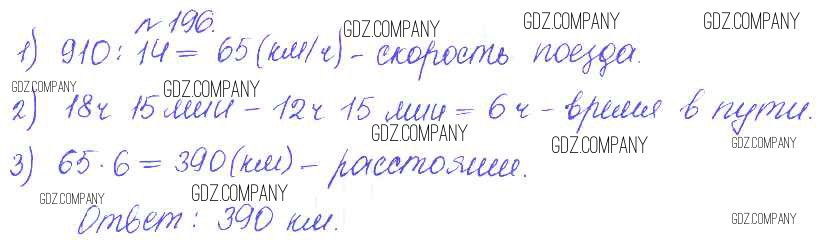 № 196.
GDZ.COMPANY GDZ.COMPANY GDZ.COMPANY
1) 910 : 14 = 65 (км/ч) - скорость поезда.
GDZ.COMPANY GDZ.COMPANY
2) 18ч 15 мин - 12ч 15 мин = 6 ч - время в пути.
GDZ.COMPANY GDZ.COMPANY GDZ.COMPANY
3) 65 · 6 = 390 (км) - расстоянии.
GDZ.COMPANY GDZ.COMPANY
Ответ: 390 км.
GDZ.COMPANY